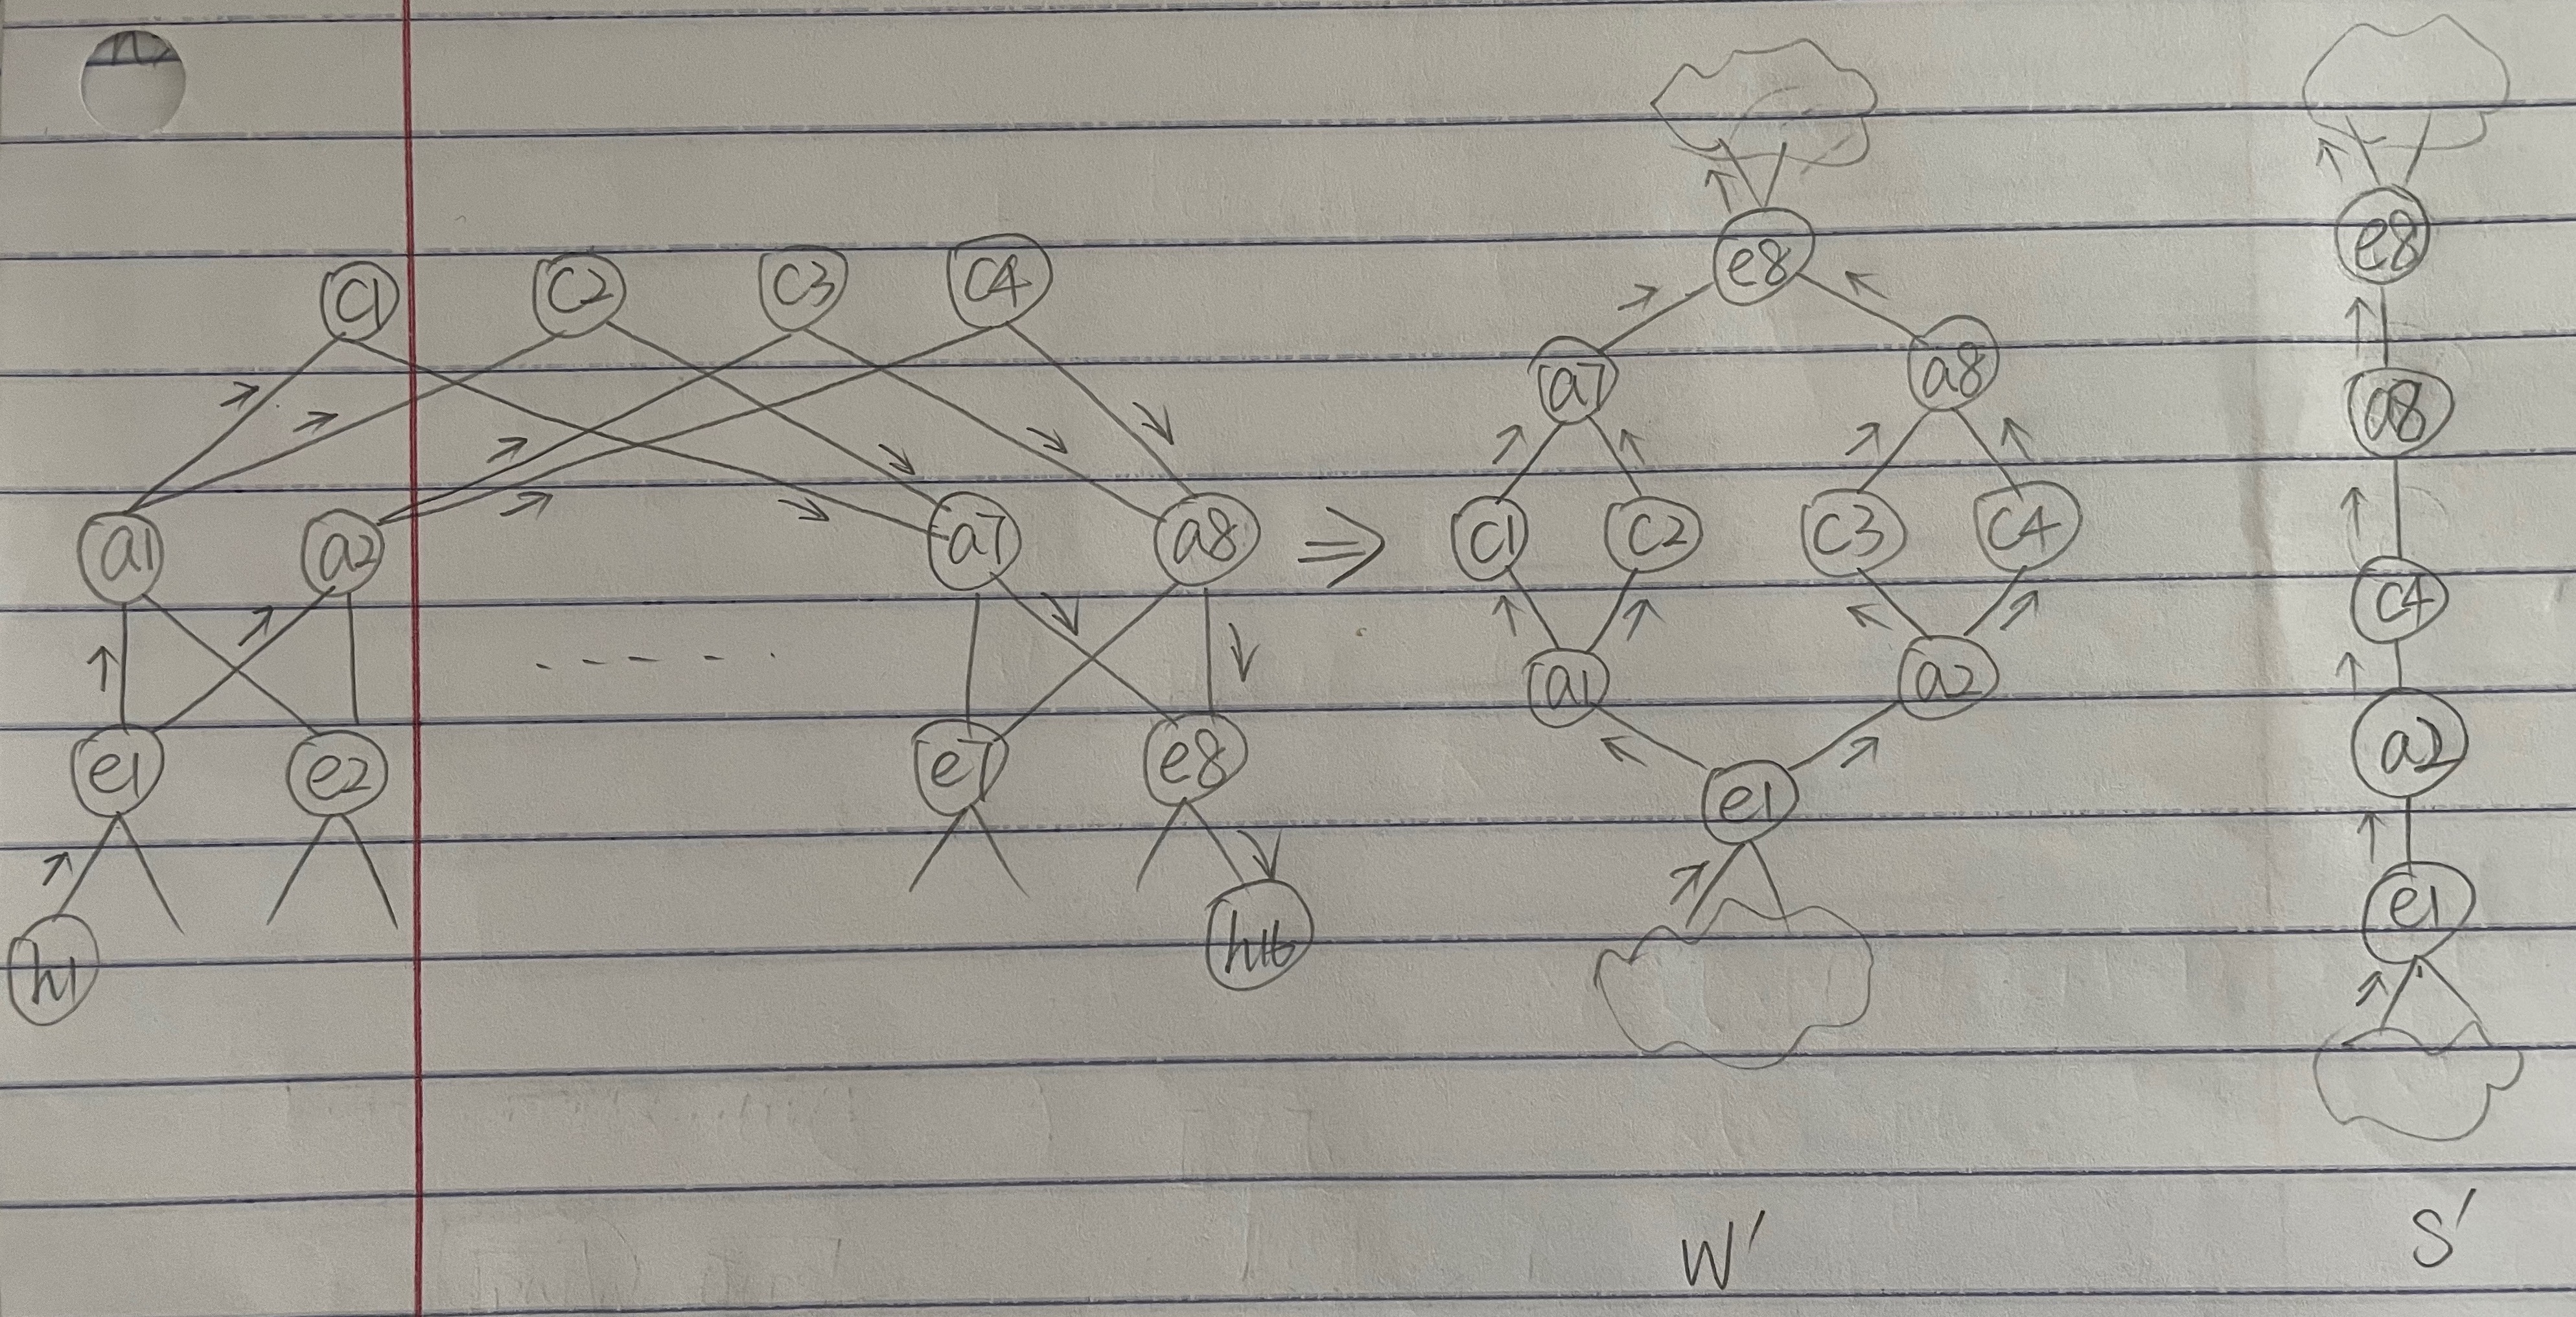 c1 c2 c3 c4
a1 a2 a7 a8
e1 e2 e7 e8
h1 h16
⇒
e8
a7 a8
c1 c2 c3 c4
a1 a2
e1
W'
e8
a8
c4
a2
e1
S'